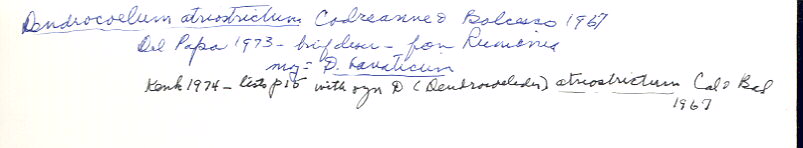 Dendrocoelum atriostrictum Codreanu & Balcesco 1967
Del Papa 1973 - brief descr - from Rumania
may = D. lavaticum
Kenk 1974 - lists p 15 with syn D (Dendrocoelides) atriostrictum Cod & Bal
1967